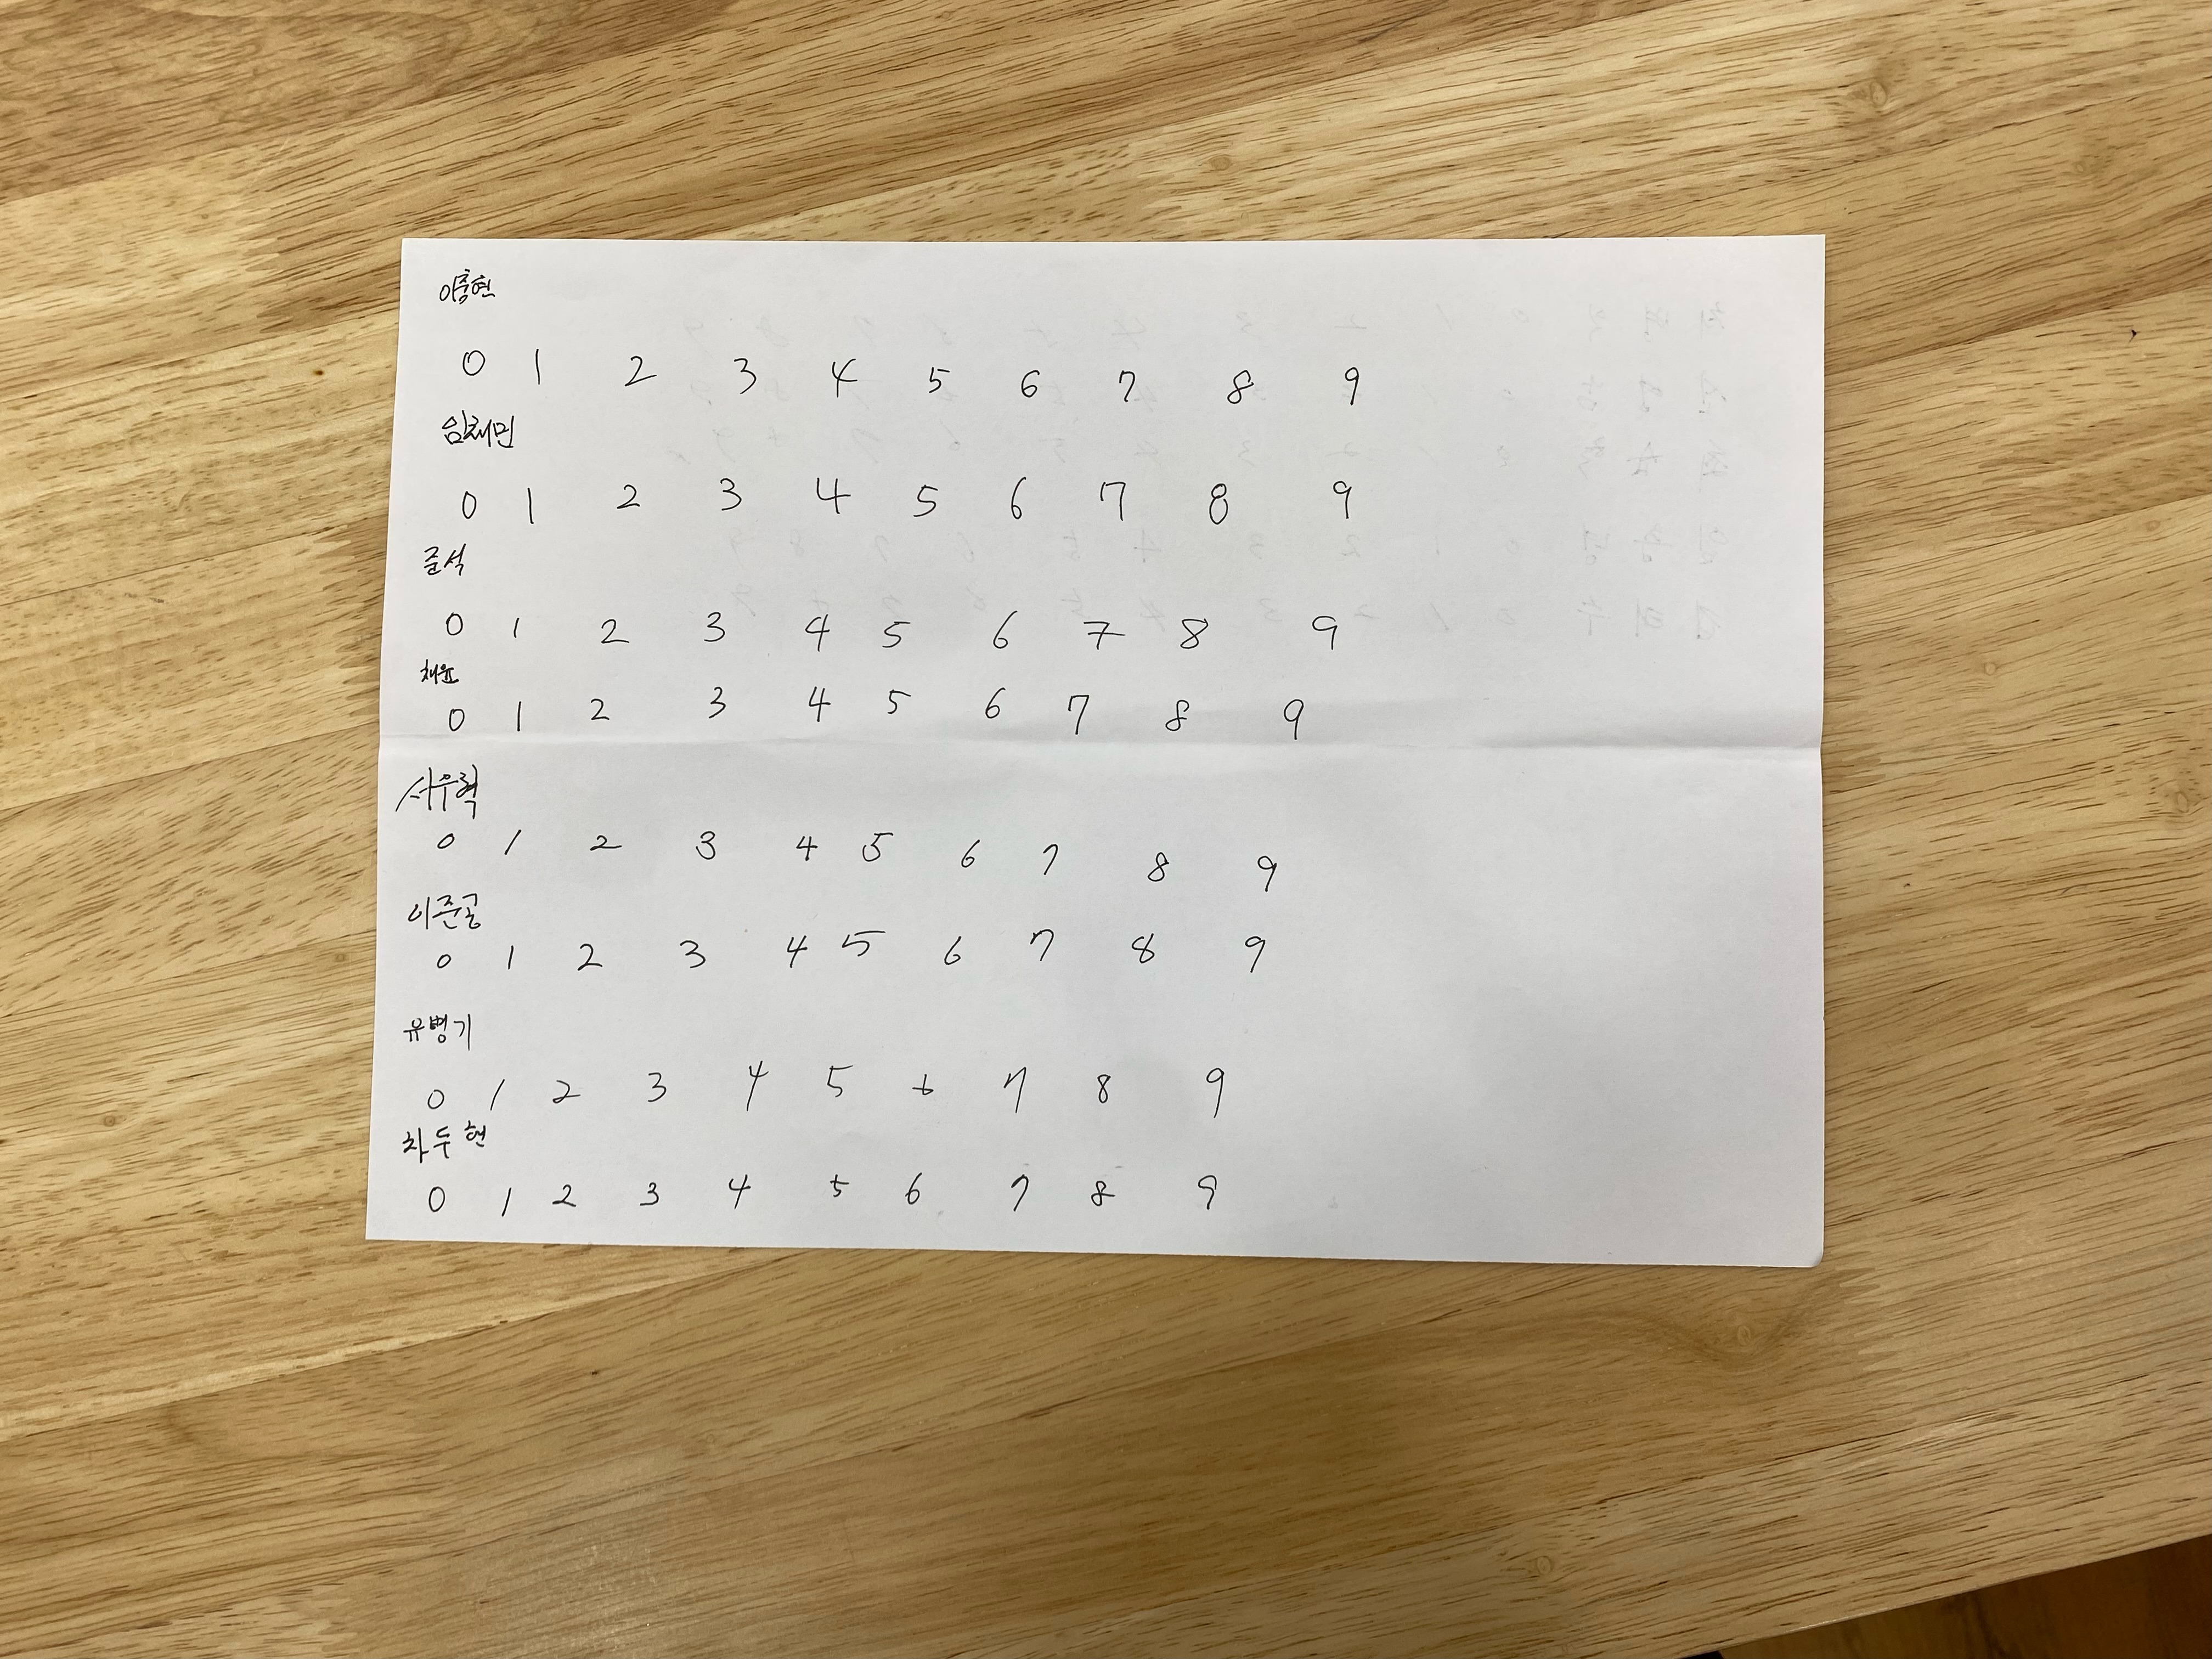 이중현
0 1 2 3 4 5 6 7 8 9
임채민
0 1 2 3 4 5 6 7 8 9
준석
0 1 2 3 4 5 6 7 8 9
채윤
0 1 2 3 4 5 6 7 8 9
서우혁
0 1 2 3 4 5 6 7 8 9
이준공
0 1 2 3 4 5 6 7 8 9
유병기
0 1 2 3 4 5 6 7 8 9
차두현
0 1 2 3 4 5 6 7 8 9